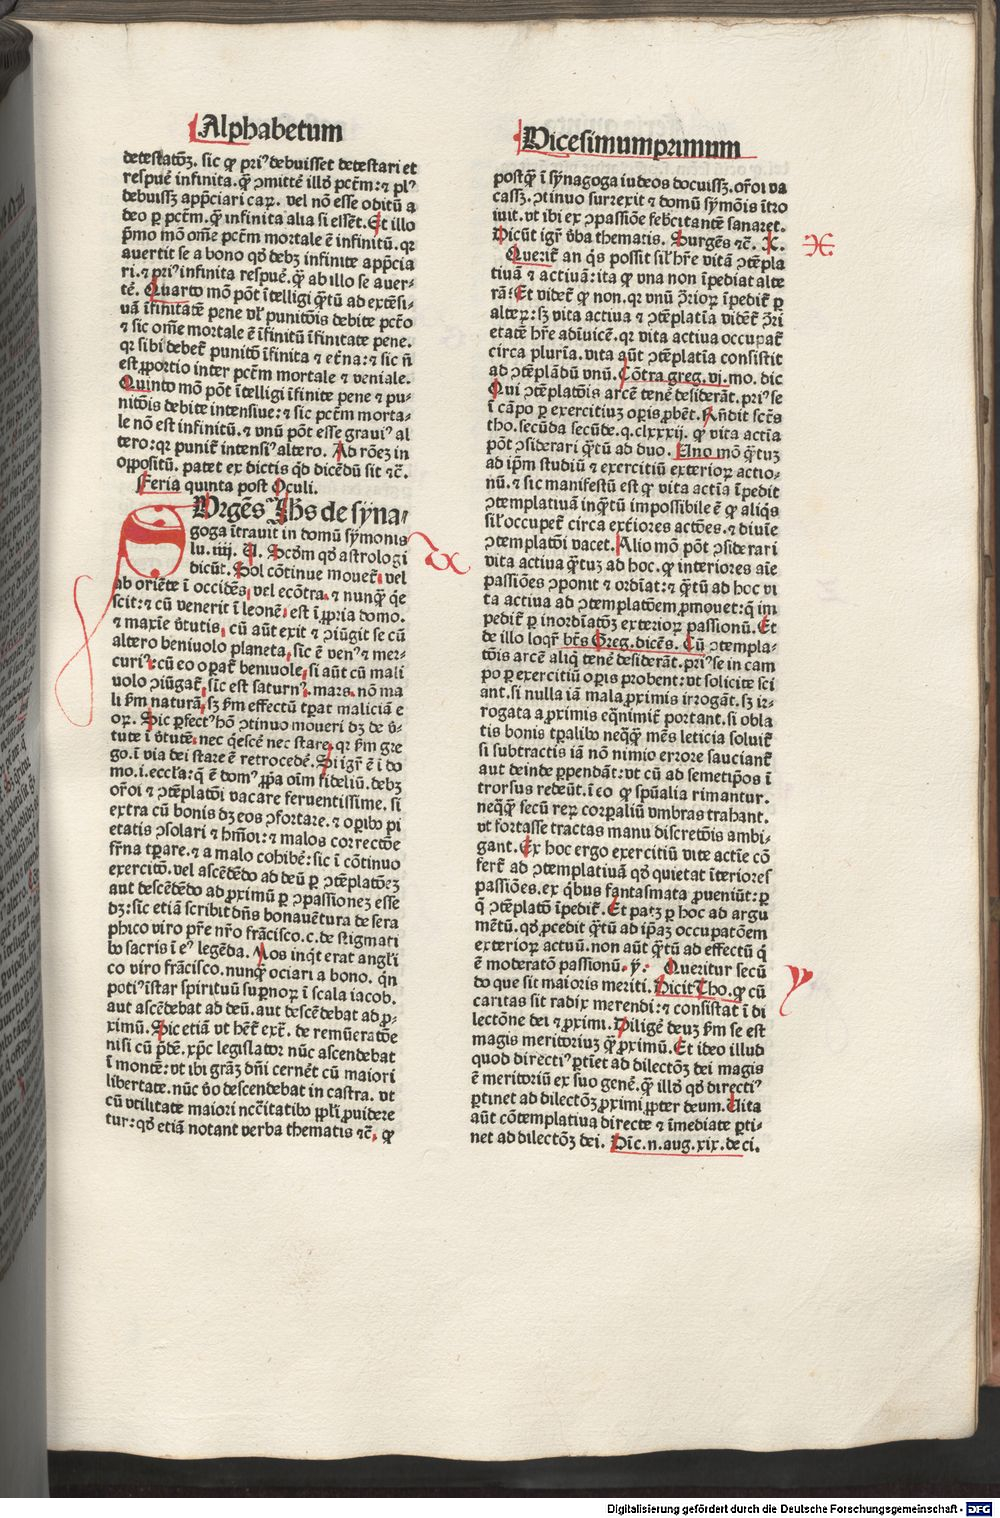 Alphabetum
detestatōꝫ. sic ꝙ pri⁹ debuisset detestari et
respuē infinita. qᷓꝫ ꝯmittē illḋ pctm̄: ⁊ pl⁹
debuissꝫ app̄ciari caꝝ. vel nō esse oditū a
deo ꝑ pctm̄. qᷓꝫ infinita alia si essēt. Et illo
p̄mo mō om̄e pctm̄ mortale ē infinitū. qꝛ
auertit se a bono qḋ debꝫ infinite app̄cia
ri. ⁊ pri⁹ infinita respuē. qᷓꝫ ab illo se auer-
tē. Quarto mō pōt ītelligi qᷓꝫtū ad extēsi-
uā īfinitatē pene vl̓ punitōis debite pctō
⁊ sic om̄e mortale ē īfinitū īfinitate pene.
qꝛ sibi debet̄ punitō īfinita ⁊ et̄na: ⁊ sic n̄
est ꝓportio inter pctm̄ mortale ⁊ veniale.
Quinto mō pōt ītelligi īfinite pene ⁊ pu-
nitōis debite intensiue: ⁊ sic pctm̄ morta-
le nō est infinitū. ⁊ vnū pōt esse graui⁹ al
tero: qꝛ punit̄ intensi⁹ altero. Ad rōeꝫ in
oppositū. patet ex dictis qḋ dicēdū sit ⁊c̄.
Feria quinta post Oculi.
Vrgēs Ih̄s de syna-
goga ītrauit in domū symonis
lu. iiij. El. Scd̄m qḋ astrologi
dicūt. Sol cōtinue mouet̄, vel
ab oriēte ī occidēs, vel ecōtra, ⁊ nunqᷓꝫ qᷓe
scit: ⁊ cū venerit ī leonē, est ī ꝓpria domo.
⁊ maxīe v̄tutis, cū aūt exit ⁊ ꝯiūgit se cū
altero beniuolo planeta, sic ē ven⁹ ⁊ mer-
curi⁹, cū eo oꝑat̄ beniuole, si aūt cū mali
uolo ꝯiūgat̄, sic est saturn⁹, mars, nō ma
li ẜm naturā, sꝫ ẜm effectū tꝑat maliciā e
oꝝ. Sic ꝑfect⁹ hō ꝯtinuo moueri dꝫ de v̄-
tute ī v̄tutē, nec qᷓescē nec stare, qꝛ ẜm gre
go. ī via dei stare ē retrocedē. Si igr̄ ē ī do
mo. i. eccl̓ia: q̄ ē dom⁹ ꝓpa oīm fideliū. debꝫ
or̄oi ⁊ ꝯtēplatōi vacare feruentissime. si
extra cū bonis dꝫ eos ꝯfortare. ⁊ oꝑibꝰ pi
etatis ꝯsolari ⁊ hm̄oi: ⁊ malos correctōe
fr̄na tꝑare. ⁊ a malo cohibē: sic ī cōtinuo
exercitō. vel ascēdēdo ad deū ꝑ ꝯtēplatōeꝫ
aut descēdēdo ad ꝓximū ꝑ ꝯpassioneꝫ esse
dꝫ: sic etiā scribit dn̄s bonauētura de sera
phico viro pr̄e nr̄o frācisco. c. de stigmati
bꝰ sacris ī e⁹ legēda. Mos inqͥt erat angl̓i
co viro frācisco. nunqᷓꝫ ociari a bono. qn̄
poti⁹ īstar spirituū suꝑnoꝝ ī scala iacob.
aut ascēdebat ad deū. aut descēdebat ad ꝓ-
ximū. Sic etiā vt hēt̄ ext̄. de remūeratōe
nisi cū p̄dē. xp̄c legislator nūc ascendebat
ī montē: vt ibi grāꝫ dn̄i cernēt cū maiori
libertate. nūc v̓o descendebat in castra. vt
cū vtilitate maiori ncc̄itatibꝰ ppl̓i ꝓuidere
tur: qḋ etiā notant verba thematis ⁊c̄. ꝙ
x
Vicesimumprimum
postqᷓꝫ ī synagoga iudeos docuissꝫ. or̄oi va
cassꝫ. ꝯtinuo surrexit ⁊ domū symōis ītro
iuit. vt ibi ex ꝯpassiōe febricitantē sanaret.
Dicūt igr̄ v̓ba thematis. Surgēs ⁊c̄. X.
Querit̄ an qͥs possit sil̓ hr̄e vitā ꝯtēpla
tiuā ⁊ actiuā: ita ꝙ vna non īpediat alte
rā: Et videt̄ ꝙ non. qꝛ vnū ꝯ̄rioꝝ īpedit̄ ꝑ
alteꝝ: sꝫ vita actiua ⁊ ꝯtēplatīa vident̄ ꝯ̄ri
etatē hr̄e adīuicē. qꝛ vita actiua occupat̄
circa pluria. vita aūt ꝯtēplatīa consistit
ad ꝯtēplādū vnū. Cōtra greg. vj. mo. dic
Qui ꝯtēplatōis arcē tenē desiderāt. pri⁹ se
ī cāpo ꝑ exercitiuꝫ oꝑis ꝓbēt. Rn̄dit sct̄s
tho. secūda secūde. q. clxxxij. ꝙ vita actīa
pōt ꝯsiderari qᷓꝫtū ad duo. Uno mō qᷓꝫtuꝫ
ad ip̄m studiū ⁊ exercitiū exterioꝝ actio-
nū. ⁊ sic manifestū est ꝙ vita actīa īpedit
ꝯtemplatiuā inqᷓꝫtū impossibile ē ꝙ aliqͥs
sil̓ occupet̄ circa ext̄iores actōes. ⁊ diuīe
ꝯtemplatōi vacet. Alio mō pōt ꝯsiderari
vita actiua qᷓꝫtuꝫ ad hoc. ꝙ interiores aīe
passiōes ꝯponit ⁊ ordīat: ⁊ qᷓꝫtū ad hoc vi
ta actiua ad ꝯtemplatōem ꝓmouet: q̄ im
pedit̄ ꝑ inordīatōꝫ exterioꝝ passionū. Et
de illo loqͥr bt̄s Greg. dicēs. Cū ꝯtempla-
tōis arcē aliqͥ tenē desiderāt. pri⁹ se in cam
po ꝑ exercitiū oꝑis probent: vt solicite sci
ant. si nulla iā mala ꝓximis irrogāt. sꝫ ir-
rogata a ꝓximis eqͣnimit̄ portant. si obla
tis bonis tꝑalibꝰ neqᷓꝫqᷓꝫ mēs leticia soluit̄
si subtractis iā nō nimio errore sauciant̄
aut deinde ꝑpendāt: vt cū ad semetip̄os ī
trorsus redeūt. ī eo ꝙ spūalia rimantur.
neqᷓꝫqᷓꝫ secū reꝝ corꝑaliū vmbras trahant.
vt fortasse tractas manu discretōis ambi-
gant. Ex hoc ergo exercitiū vite actīe cō
fert̄ ad ꝯtemplatiuā qḋ quietat īteriores
passiōes. ex qͥbus fantasmata ꝓueniūt: ꝑ
q̄ ꝯtēplatō īpedit̄. Et patꝫ ꝑ hoc ad argu
mētū. qḋ ꝓcedit qᷓꝫtū ad ip̄aꝫ occupatōem
exterioꝝ actuū. non aūt qᷓꝫtū ad effectū q̄
ē moderatō passionū. y. Queritur secū
do que sit maioris meriti. Dicit Tho. ꝙ cū
caritas sit radix merendi: ⁊ consistat ī di
lectōne dei ⁊ ꝓximi. Diligē deuꝫ ẜm se est
magis meritoriuꝫ qᷓꝫ ꝓximū. Et ideo illud
quod directi⁹ ꝑtīet ad dilectōꝫ dei magis
ē meritoriū ex suo genē. qᷓꝫ illḋ qḋ directi⁹
ꝑtinet ad dilectōꝫ ꝓximi ꝓpter deum. Uita
aūt cōtemplatiua directe ⁊ īmediate ꝑti-
net ad dilectōꝫ dei. Dīc. n. aug. xix. de ci.
X
y
Digitalisierung gefördert durch die Deutsche Forschungsgemeinschaft - DFG